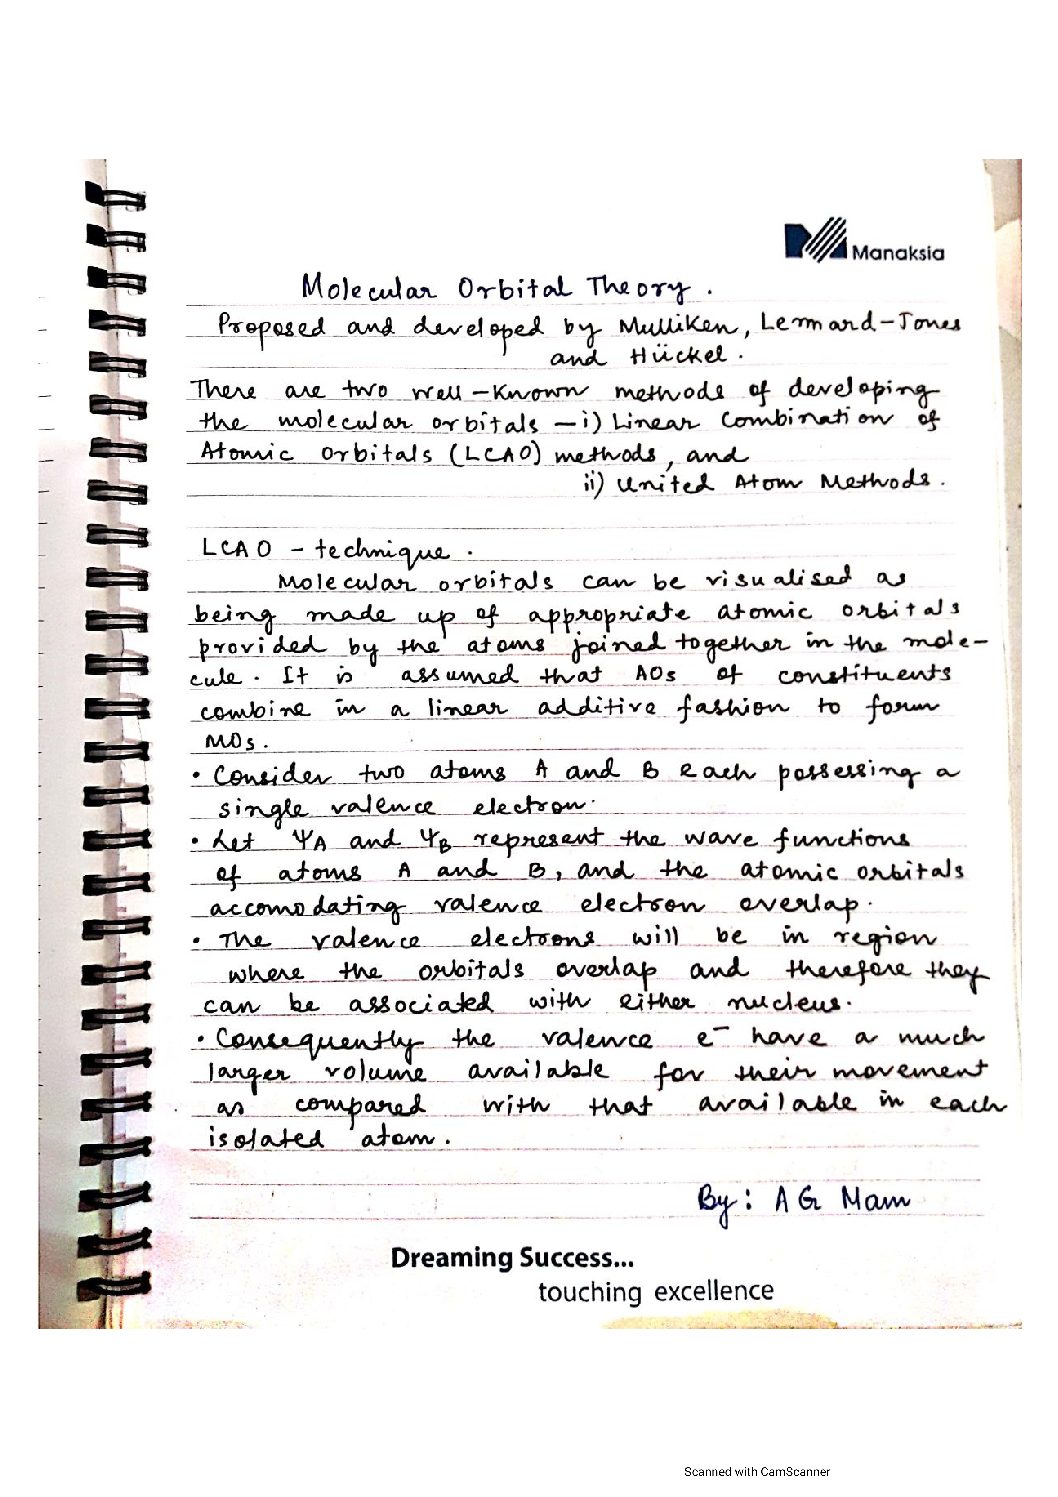 Manaksia
Molecular Orbital Theory.
Proposed and developed by Mulliken, Lennard-Jones
and Hückel.
There are two well-known methods of developing
the molecular orbitals - i) Linear Combination of
Atomic Orbitals (LCAO) methods, and
ii) United Atom Methods.
LCAO - technique.
Molecular orbitals can be visualised as
being made up of appropriate atomic orbitals
provided by the atoms joined together in the mole-
cule. It is assumed that AOs of constituents
combine in a linear additive fashion to form
MOs.
• Consider two atoms A and B each possessing a
single valence electron.
• Let ΨA and ΨB represent the wave functions
of atoms A and B, and the atomic orbitals
accomodating valence electron overlap.
• The valence electrons will be in region
where the orbitals overlap and therefore they
can be associated with either nucleus.
• Consequently the valence e⁻ have a much
larger volume available for their movement
as compared with that available in each
isolated atom.
By: AG Mam
Dreaming Success...
touching excellence
Scanned with CamScanner